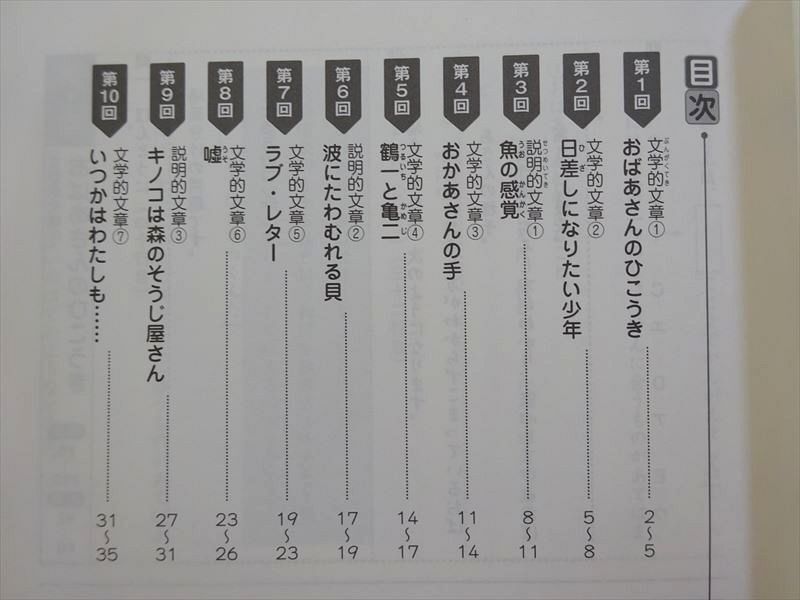 目次
第1回
文学的文章①
ぶんがくてき
おばあさんのひこうき
2〜5
第2回
文学的文章②
日差しになりたい少年
ひざ
5〜8
第3回
説明的文章①
せつめいてき
魚の感覚
うお かんかく
8〜11
第4回
文学的文章③
おかあさんの手
11〜14
第5回
文学的文章④
鶴一と亀二
つるいち かめじ
14〜17
第6回
説明的文章②
波にたわむれる貝
17〜19
第7回
文学的文章⑤
ラブ・レター
19〜23
第8回
文学的文章⑥
嘘
うそ
23〜26
第9回
説明的文章③
キノコは森のそうじ屋さん
27〜31
第10回
文学的文章⑦
いつかはわたしも……
31〜35